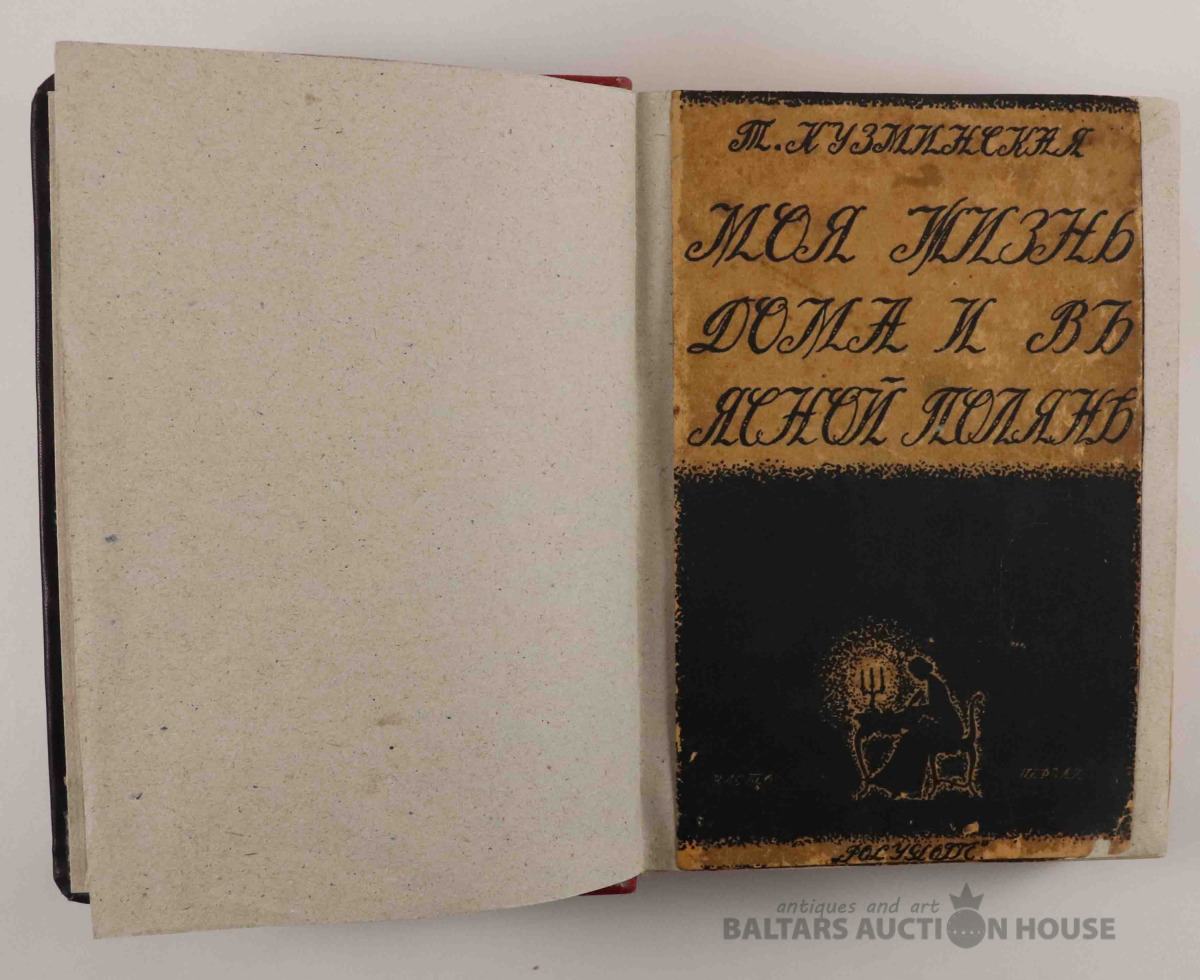 Т. КУЗМИНСКАЯ
МОЯ ЖИЗНЬ
ДОМА И ВЪ
ЯСНОЙ ПОЛЯНѢ
ЧАСТЬ ПЕРВАЯ
antiques and art
BALTARS AUCTION HOUSE